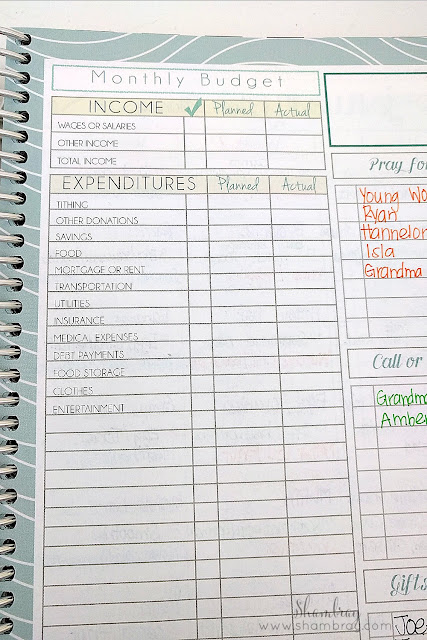 Monthly Budget
INCOME Planned Actual
WAGES OR SALARIES
OTHER INCOME
TOTAL INCOME
EXPENDITURES Planned Actual
TITHING
OTHER DONATIONS
SAVINGS
FOOD
MORTGAGE OR RENT
TRANSPORTATION
UTILITIES
INSURANCE
MEDICAL EXPENSES
DEBT PAYMENTS
FOOD STORAGE
CLOTHES
ENTERTAINMENT
Pray for
Young Wo
Ryan
Hannelor
Isla
Grandma
Call or
Grandma
Amber
Gifts
Joe
Shambray
www.shambray.com